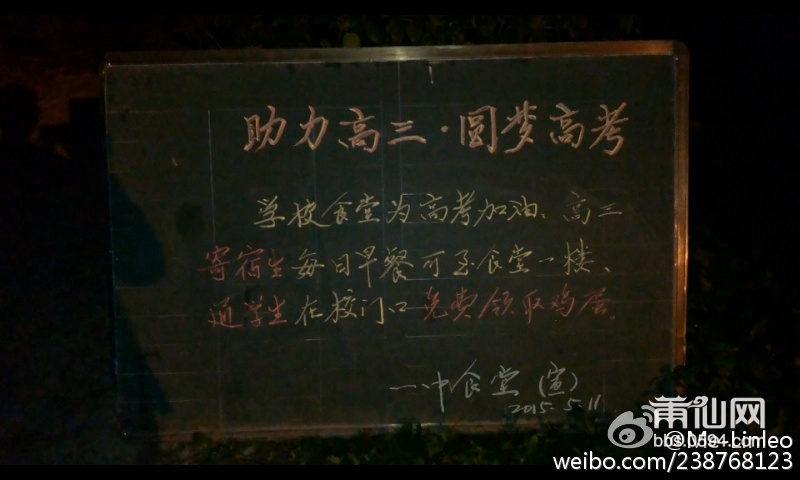 助力高三·圆梦高考
学校食堂为高考加油、高三
寄宿生每日早餐可至食堂一楼、
通学生在校门口免费领取鸡蛋
一中食堂(宣)
2015.5.11
莆仙网
bbs.0594.com
@Mr_Linleo
weibo.com/238768123